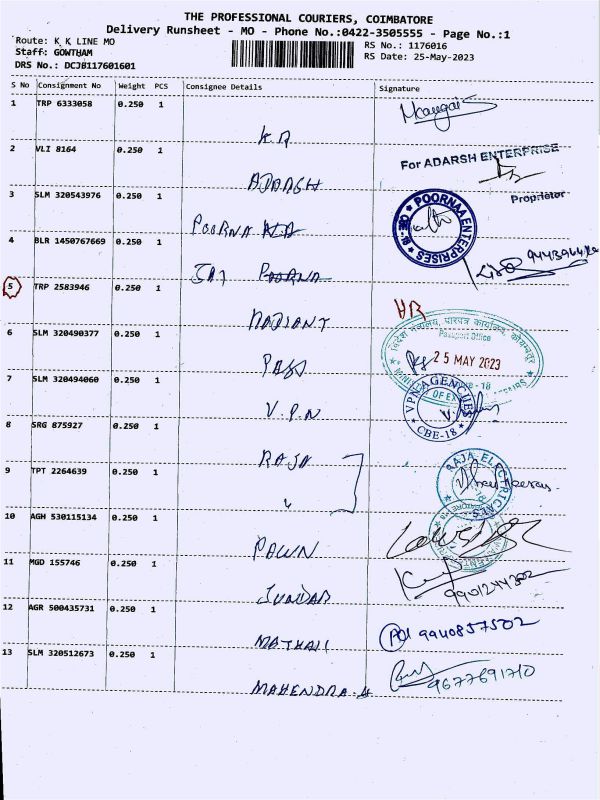 THE PROFESSIONAL COURIERS, COIMBATORE
Delivery Runsheet - MO - Phone No.:0422-3505555 - Page No.:1
Route: K K LINE MO
RS No.: 1176016
Staff: GOWTHAM
RS Date: 25-May-2023
DRS No.: DCJB117601601
S No Consignment No Weight PCS Consignee Details Signature
1 TRP 6333058 0.250 1
K R
2 VLI 8164 0.250 1
For ADARSH ENTERPRISE
ADARSH
Proprietor
3 SLM 320543976 0.250 1
★ POORNAA ENTERPRISES ★ CBE-18
POORNA
4 BLR 1450767669 0.250 1
JAI POORNA
5 TRP 2583946 0.250 1
HR
RADIANT
6 SLM 320490377 0.250 1
विदेश मंत्रालय, पारपत्र कार्यालय, कोयम्बतूर
Passport Office
25 MAY 2023
PASS
7 SLM 320494060 0.250 1
VPN AGENCIES
CBE-18
V.P.N
8 SRG 875927 0.250 1
RAJA
RAJA ELECTRICALS
9 TPT 2264639 0.250 1
"
10 AGH 530115134 0.250 1
PAWN
11 MGD 155746 0.250 1
9901244302
SUNDAR
12 AGR 500435731 0.250 1
9940857502
MATHAJI
13 SLM 320512673 0.250 1
9677691710
MAHENDRA